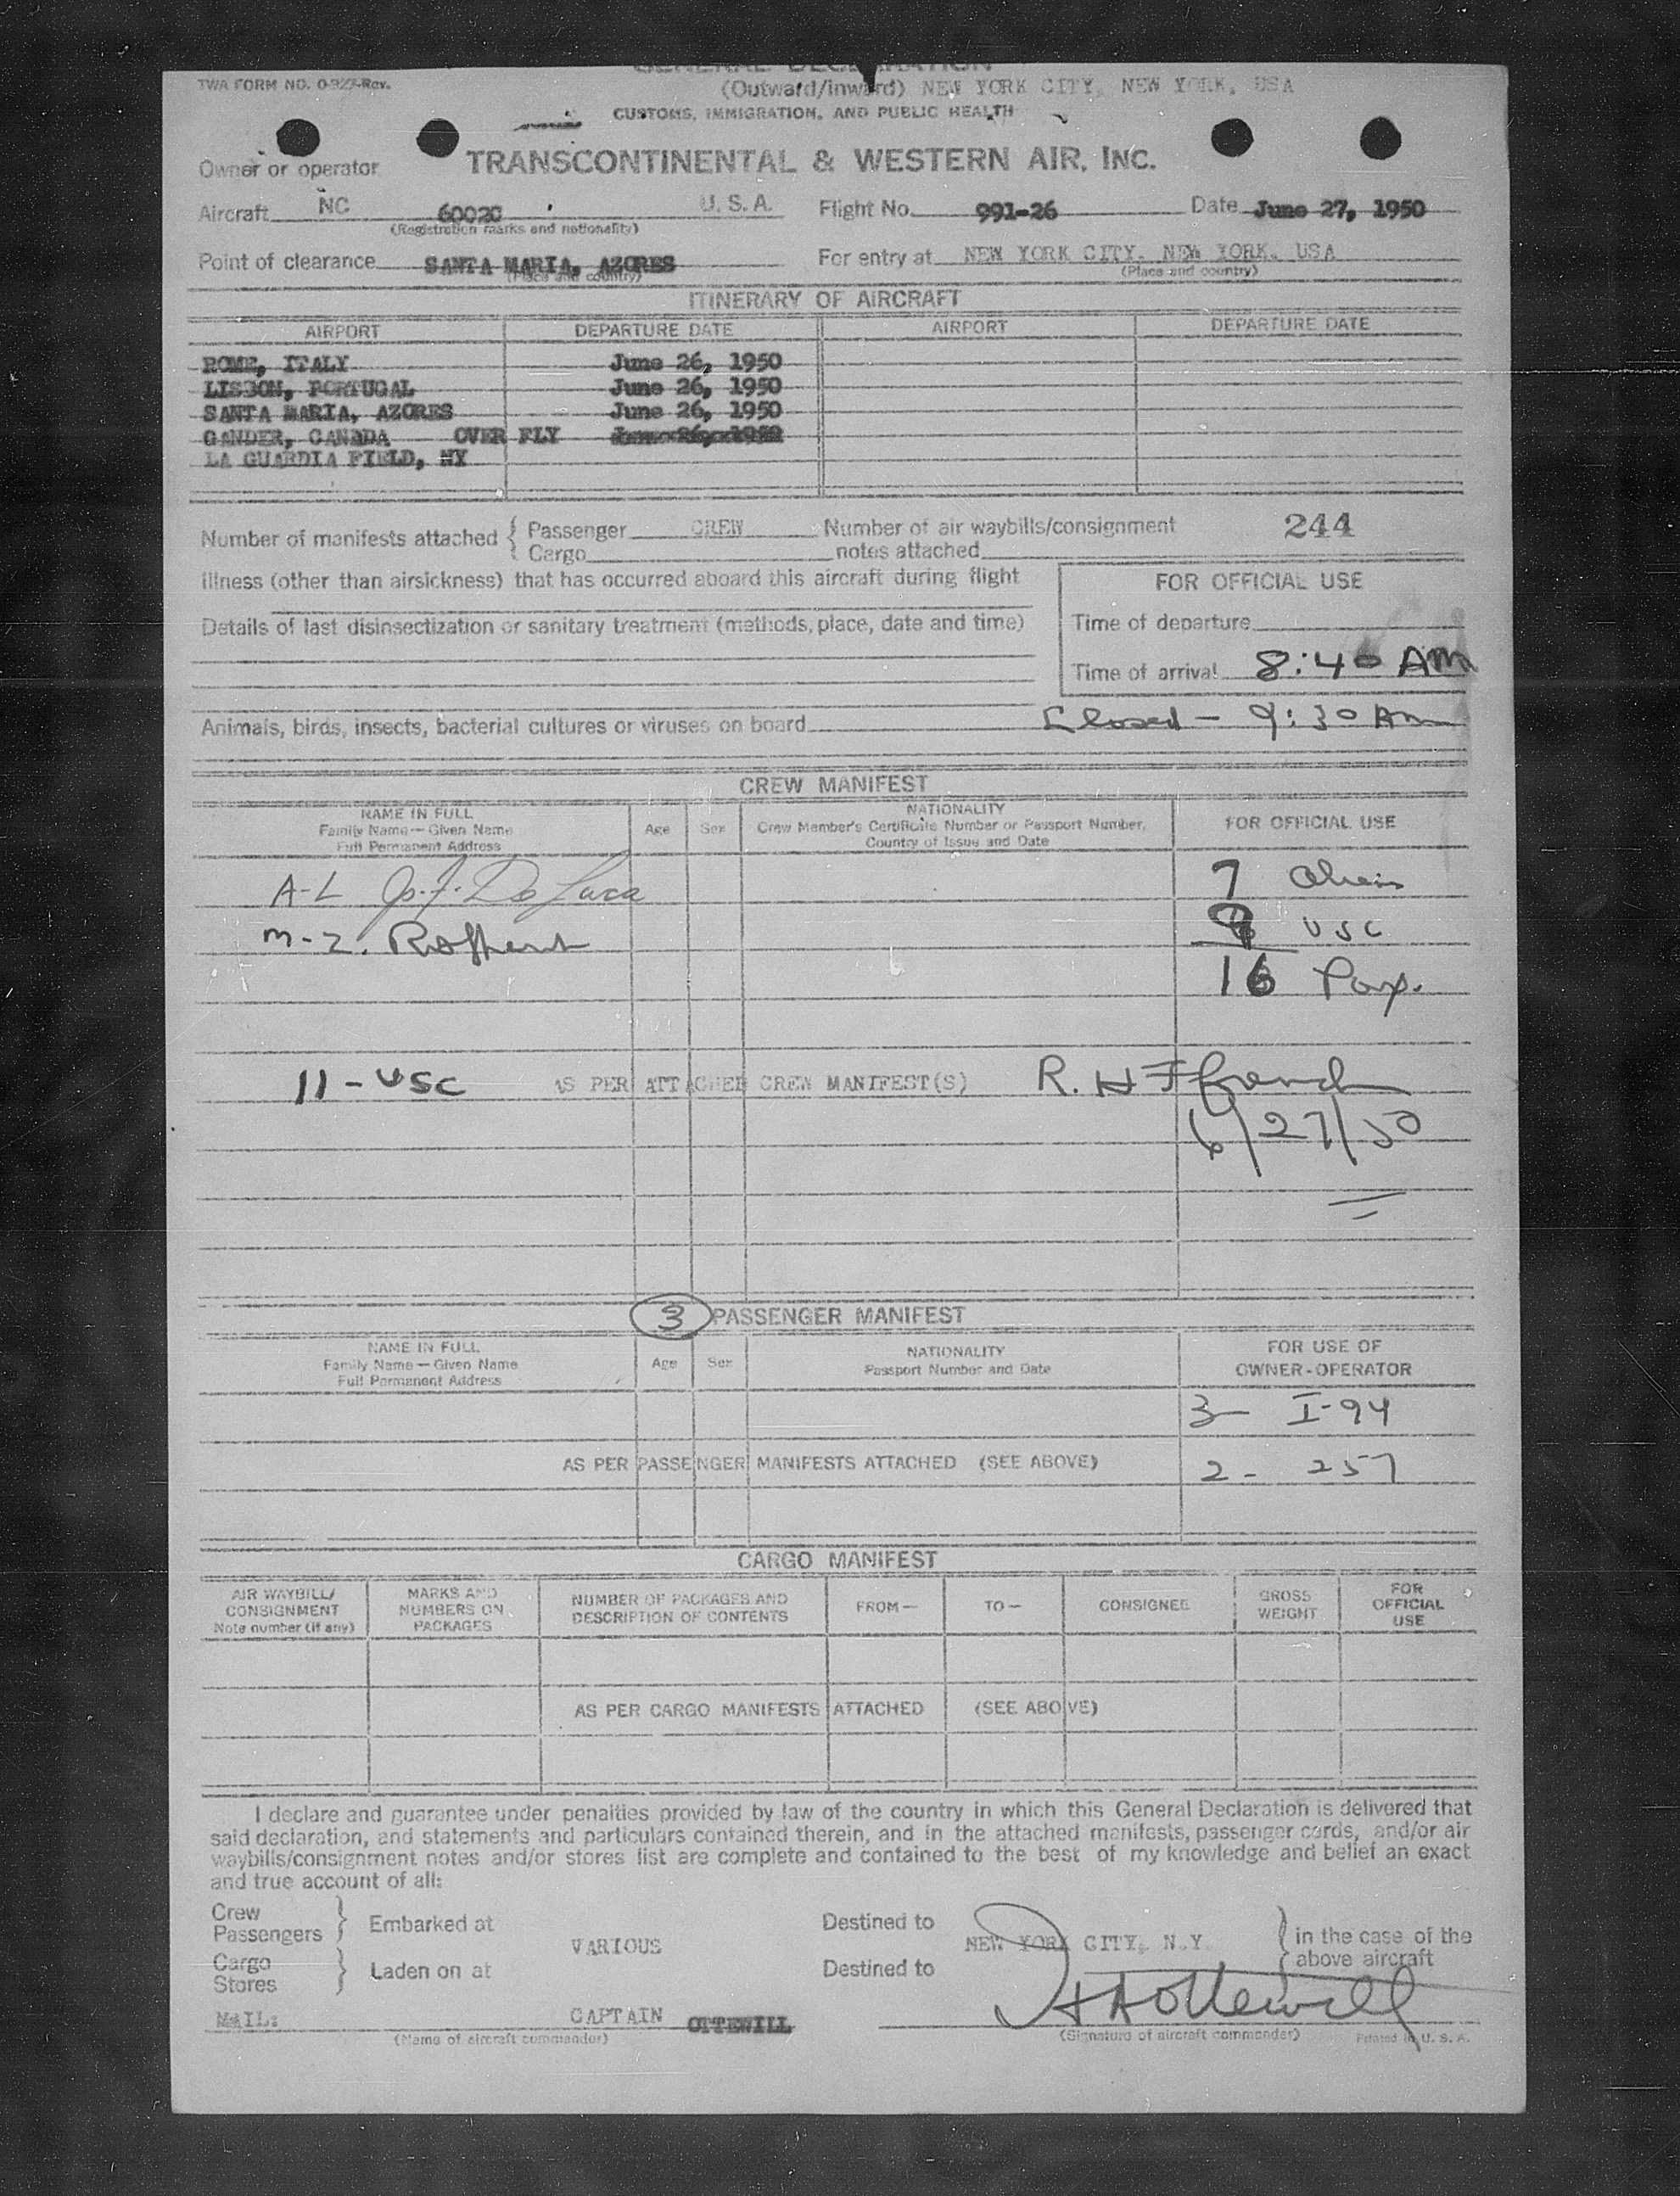 TWA FORM NO. 0-927-Rev.
GENERAL DECLARATION
(Outward/Inward) NEW YORK CITY, NEW YORK, USA
CUSTOMS, IMMIGRATION, AND PUBLIC HEALTH
Owner or operator TRANSCONTINENTAL & WESTERN AIR, INC.
Aircraft NC 6002C U. S. A. Flight No. 991-26 Date June 27, 1950
(Registration marks and nationality)
Point of clearance SANTA MARIA, AZORES For entry at NEW YORK CITY, NEW YORK, USA
(Place and country) (Place and country)
ITINERARY OF AIRCRAFT
AIRPORT DEPARTURE DATE AIRPORT DEPARTURE DATE
ROME, ITALY June 26, 1950
LISBON, PORTUGAL June 26, 1950
SANTA MARIA, AZORES June 26, 1950
GANDER, CANADA OVER FLY June 26, 1950
LA GUARDIA FIELD, NY
Number of manifests attached { Passenger CREW Number of air waybills/consignment 244
Cargo notes attached
Illness (other than airsickness) that has occurred aboard this aircraft during flight
FOR OFFICIAL USE
Details of last disinsectization or sanitary treatment (methods, place, date and time)
Time of departure
Time of arrival 8:40 AM
Animals, birds, insects, bacterial cultures or viruses on board Closed - 9:30 AM
CREW MANIFEST
NAME IN FULL
Family Name — Given Name
Full Permanent Address
Age Sex
NATIONALITY
Crew Member's Certificate Number or Passport Number,
Country of Issue and Date
FOR OFFICIAL USE
A-L J. F. De Luca 7 Aliens
M-Z. USC
16 Pax.
11 - USC AS PER ATTACHED CREW MANIFEST(S) R. H.
6/27/50
3 PASSENGER MANIFEST
NAME IN FULL
Family Name — Given Name
Full Permanent Address
Age Sex
NATIONALITY
Passport Number and Date
FOR USE OF
OWNER-OPERATOR
3- I-94
AS PER PASSENGER MANIFESTS ATTACHED (SEE ABOVE) 2- 257
CARGO MANIFEST
AIR WAYBILL/
CONSIGNMENT
Note number (if any)
MARKS AND
NUMBERS ON
PACKAGES
NUMBER OF PACKAGES AND
DESCRIPTION OF CONTENTS
FROM— TO— CONSIGNEE
GROSS
WEIGHT
FOR
OFFICIAL
USE
AS PER CARGO MANIFESTS ATTACHED (SEE ABOVE)
I declare and guarantee under penalties provided by law of the country in which this General Declaration is delivered that
said declaration, and statements and particulars contained therein, and in the attached manifests, passenger cards, and/or air
waybills/consignment notes and/or stores list are complete and contained to the best of my knowledge and belief an exact
and true account of all:
Crew
Passengers } Embarked at Destined to
VARIOUS NEW YORK CITY, N.Y. } in the case of the
above aircraft
Cargo
Stores } Laden on at Destined to
MAIL: CAPTAIN OTTEWILL HAOttewill
(Name of aircraft commander) (Signature of aircraft commander) Printed in U. S. A.